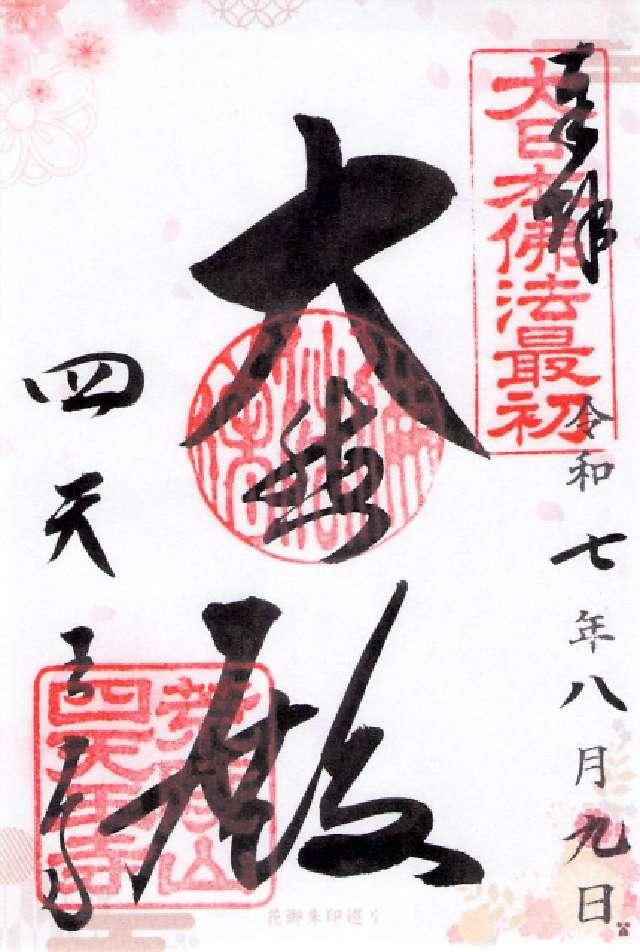 奉拝
大日本佛法最初
令和七年八月九日
大悲殿
四天王寺
荒陵山
四天王寺
花御朱印巡り